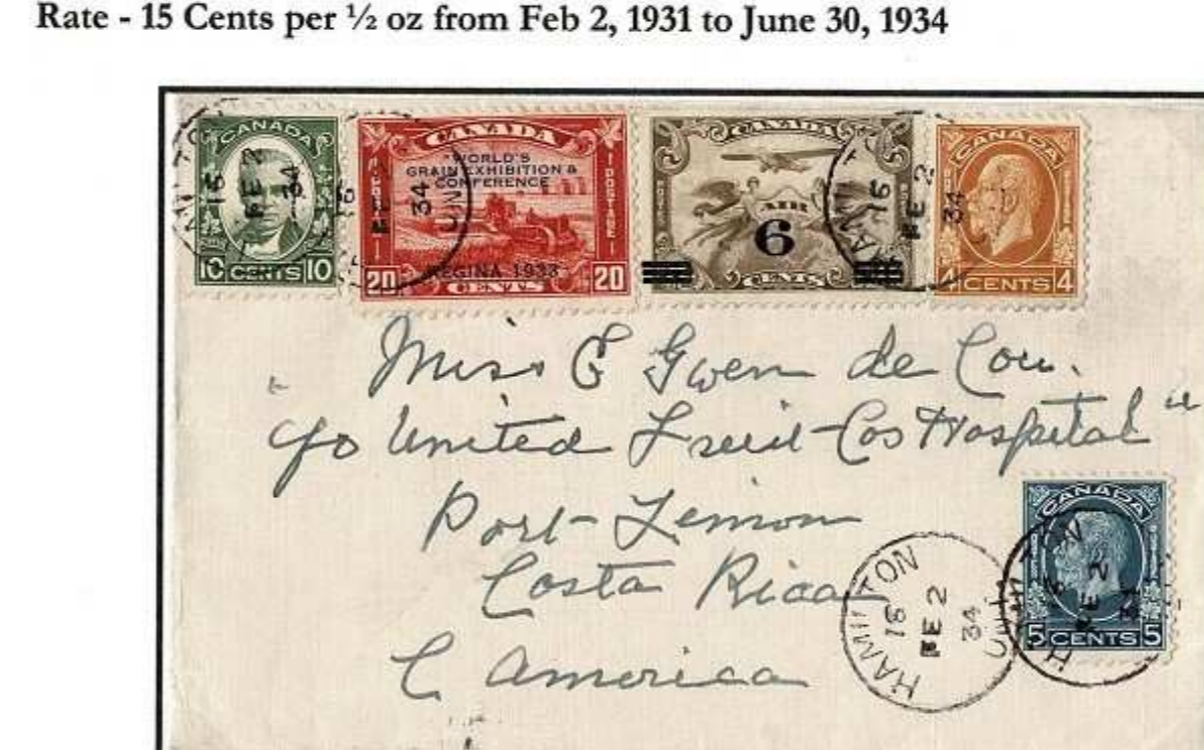 Rate - 15 Cents per ½ oz from Feb 2, 1931 to June 30, 1934
CANADA
10 CENTS 10
CANADA
WORLD'S
GRAIN EXHIBITION &
CONFERENCE
POSTAGE
REGINA 1933
20 CENTS 20
CANADA
AIR
6
CENTS
CANADA
4 CENTS 4
HAMILTON
16
FE 2
34
Miss E Gwen de Cou.
"c/o United Fruit Cos Hospital"
Port Limon
Costa Rica
C America
HAMILTON
16
FE 2
34
CANADA
5 CENTS 5